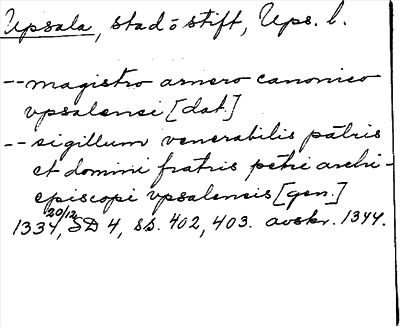 Upsala, stad o stift, Ups. l.
-- magistro arnero canonico
vpsalensi [dat.]
-- sigillum venerabilis pātris
et domini fratris petri archi-
episcopi vpsalensis [gen.]
1334 20/12, SD 4, ss. 402, 403. avskr. 1344.